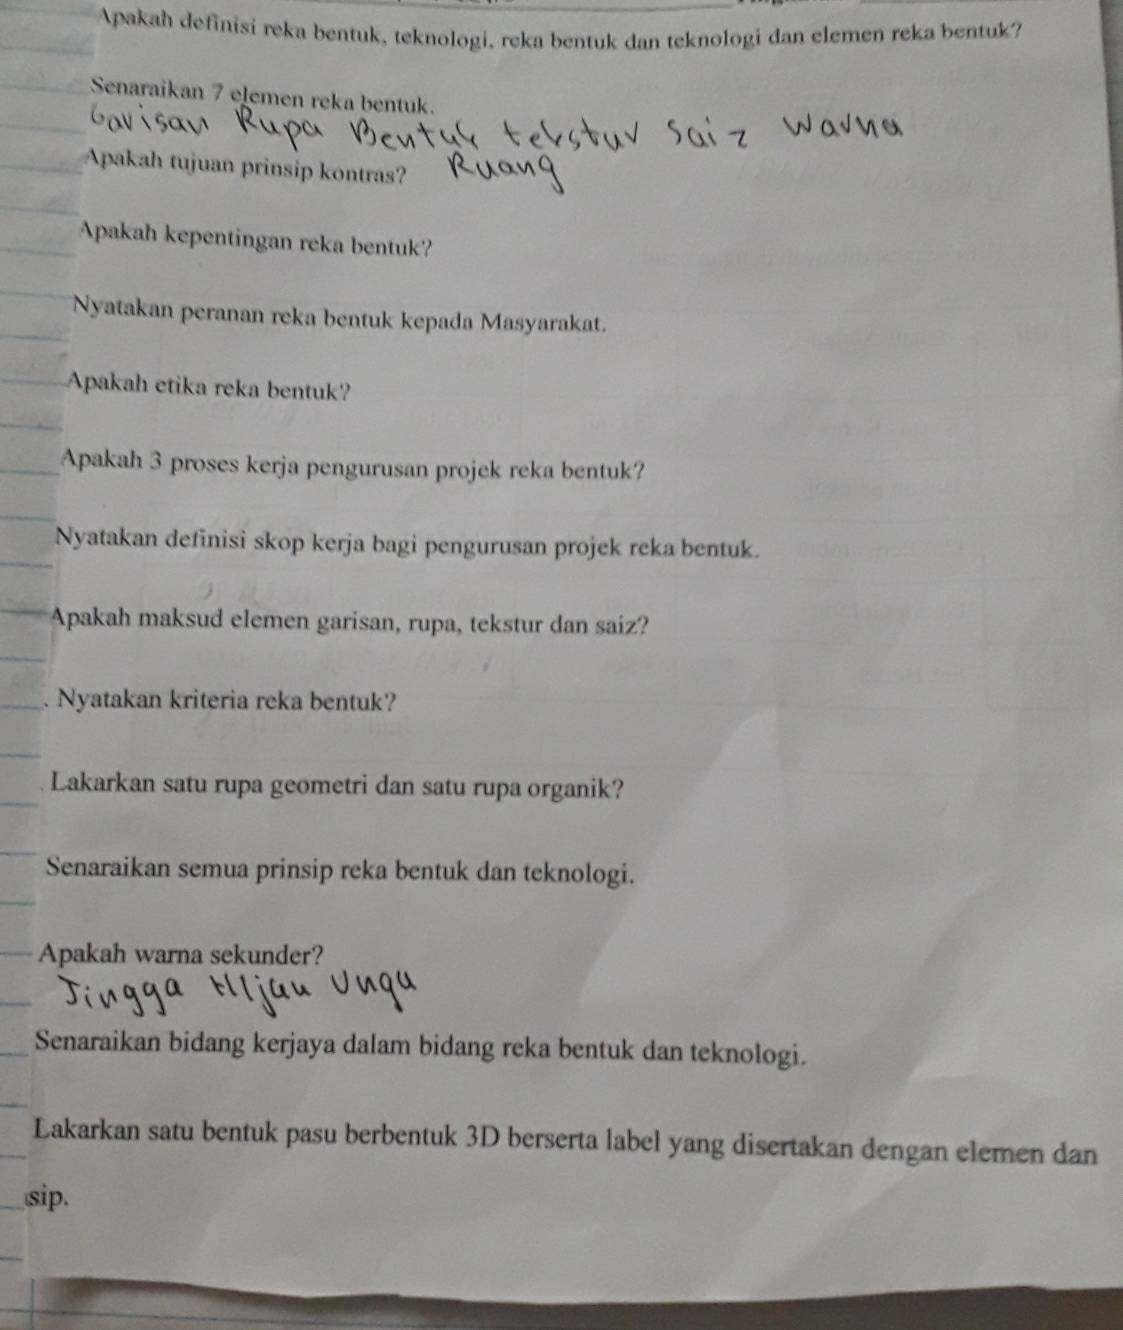 Apakah definisi reka bentuk, teknologi, reka bentuk dan teknologi dan elemen reka bentuk?
Senaraikan 7 elemen reka bentuk.
Garisan Rupa Bentuk tekstur Saiz Warna
Apakah tujuan prinsip kontras? Ruang
Apakah kepentingan reka bentuk?
Nyatakan peranan reka bentuk kepada Masyarakat.
Apakah etika reka bentuk?
Apakah 3 proses kerja pengurusan projek reka bentuk?
Nyatakan definisi skop kerja bagi pengurusan projek reka bentuk.
Apakah maksud elemen garisan, rupa, tekstur dan saiz?
. Nyatakan kriteria reka bentuk?
. Lakarkan satu rupa geometri dan satu rupa organik?
Senaraikan semua prinsip reka bentuk dan teknologi.
Apakah warna sekunder?
Jingga HIjau Ungu
Senaraikan bidang kerjaya dalam bidang reka bentuk dan teknologi.
Lakarkan satu bentuk pasu berbentuk 3D berserta label yang disertakan dengan elemen dan
sip.